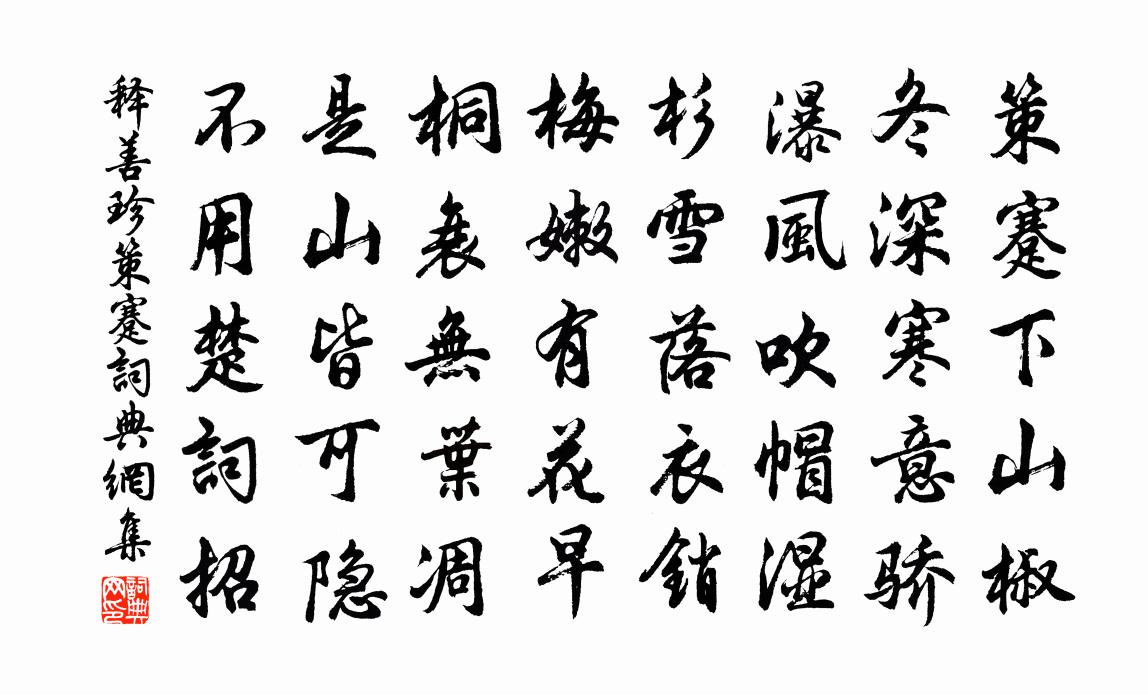 策蹇下山椒
冬深寒意骄
瀑風吹帽濕
杉雪落衣銷
梅嫩有花早
桐衰無葉凋
是山皆可隐
不用楚詞招
释善珍策蹇詞典網集
詞典網印